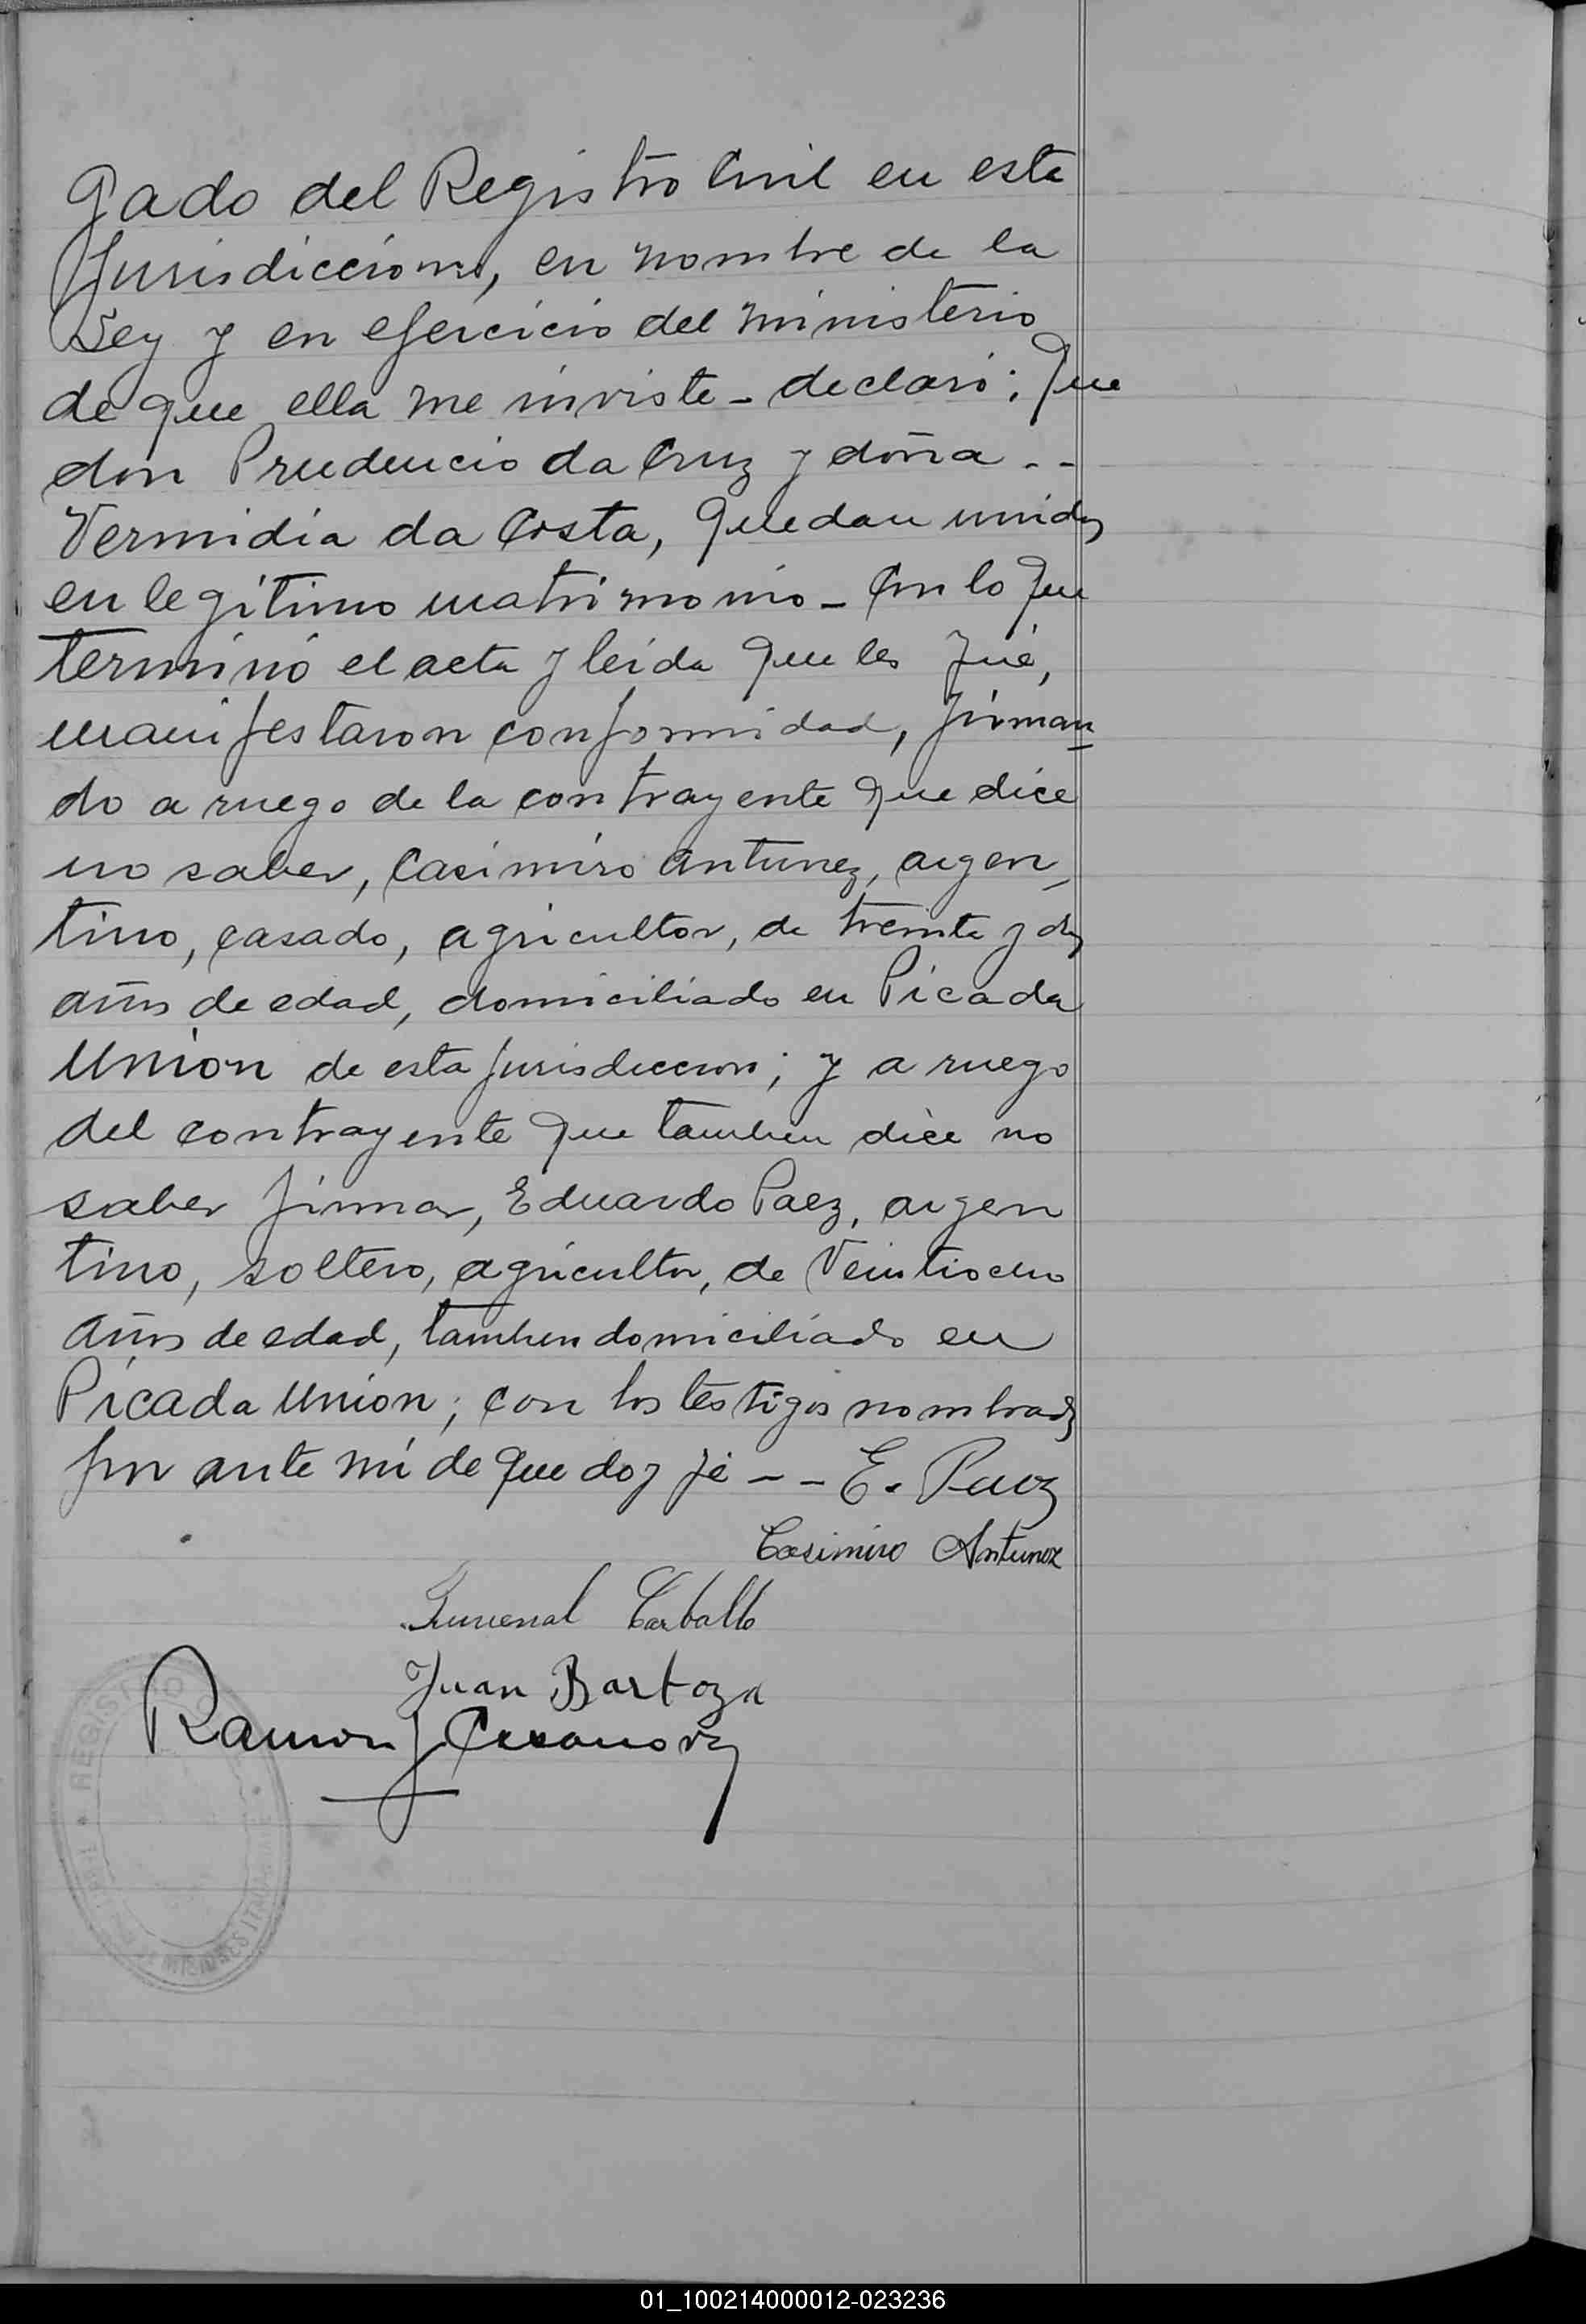 gado del Registro Civil en esta
Jurisdiccion, en nombre de la
Ley y en ejercicio del ministerio
de que ella me inviste - declaró: Que
don Prudencio da Cruz y doña - -
Vermidia da Costa, quedan unidos
en legítimo matrimonio - Con lo que
terminó el acta y leida que les fué,
manifestaron conformidad, firman
do a ruego de la contrayente que dice
no saber, Casimiro Antunez, argen
tino, casado, agricultor, de treinta y dos
años de edad, domiciliado en Picada
Unión de esta jurisdiccion; y a ruego
del contrayente que tambien dice no
saber firmar, Eduardo Paez, argen
tino, soltero, agricultor, de Veintiocho
años de edad, tambien domiciliado en
Picada Unión; con los testigos nombrados
por ante mí de que doy fé - - E. Paez
Casimiro Antunez
Juvenal Carballo
Juan Bartoza
Ramon J Casanova
REGISTRO
MISIONES
01_100214000012-023236